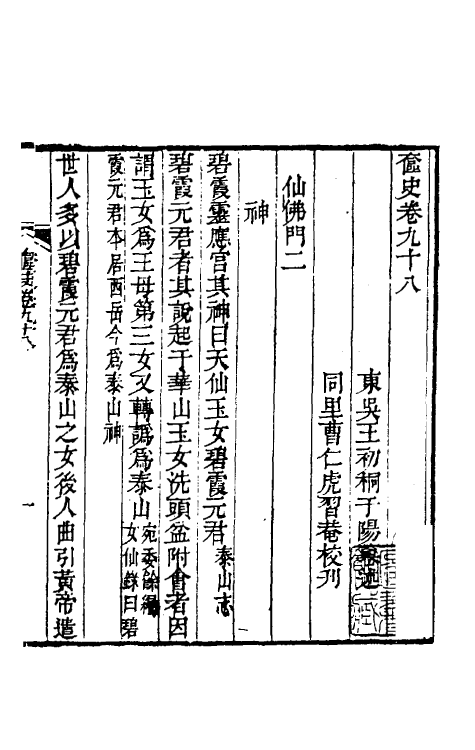 奩史卷九十八
東吳王初桐于陽纂述
同里曹仁虎習菴校刋
仙佛門二
神
碧霞靈應宮其神曰天仙玉女碧霞元君泰山志
碧霞元君者其說起于華山玉女洗頭盆附會者因
謂玉女爲王母第三女又轉譌爲泰山宛委餘編女仙錄曰碧
霞元君本居西岳今爲泰山神
世人多以碧霞元君爲泰山之女後人曲引黃帝遣
奩史卷九十八
一